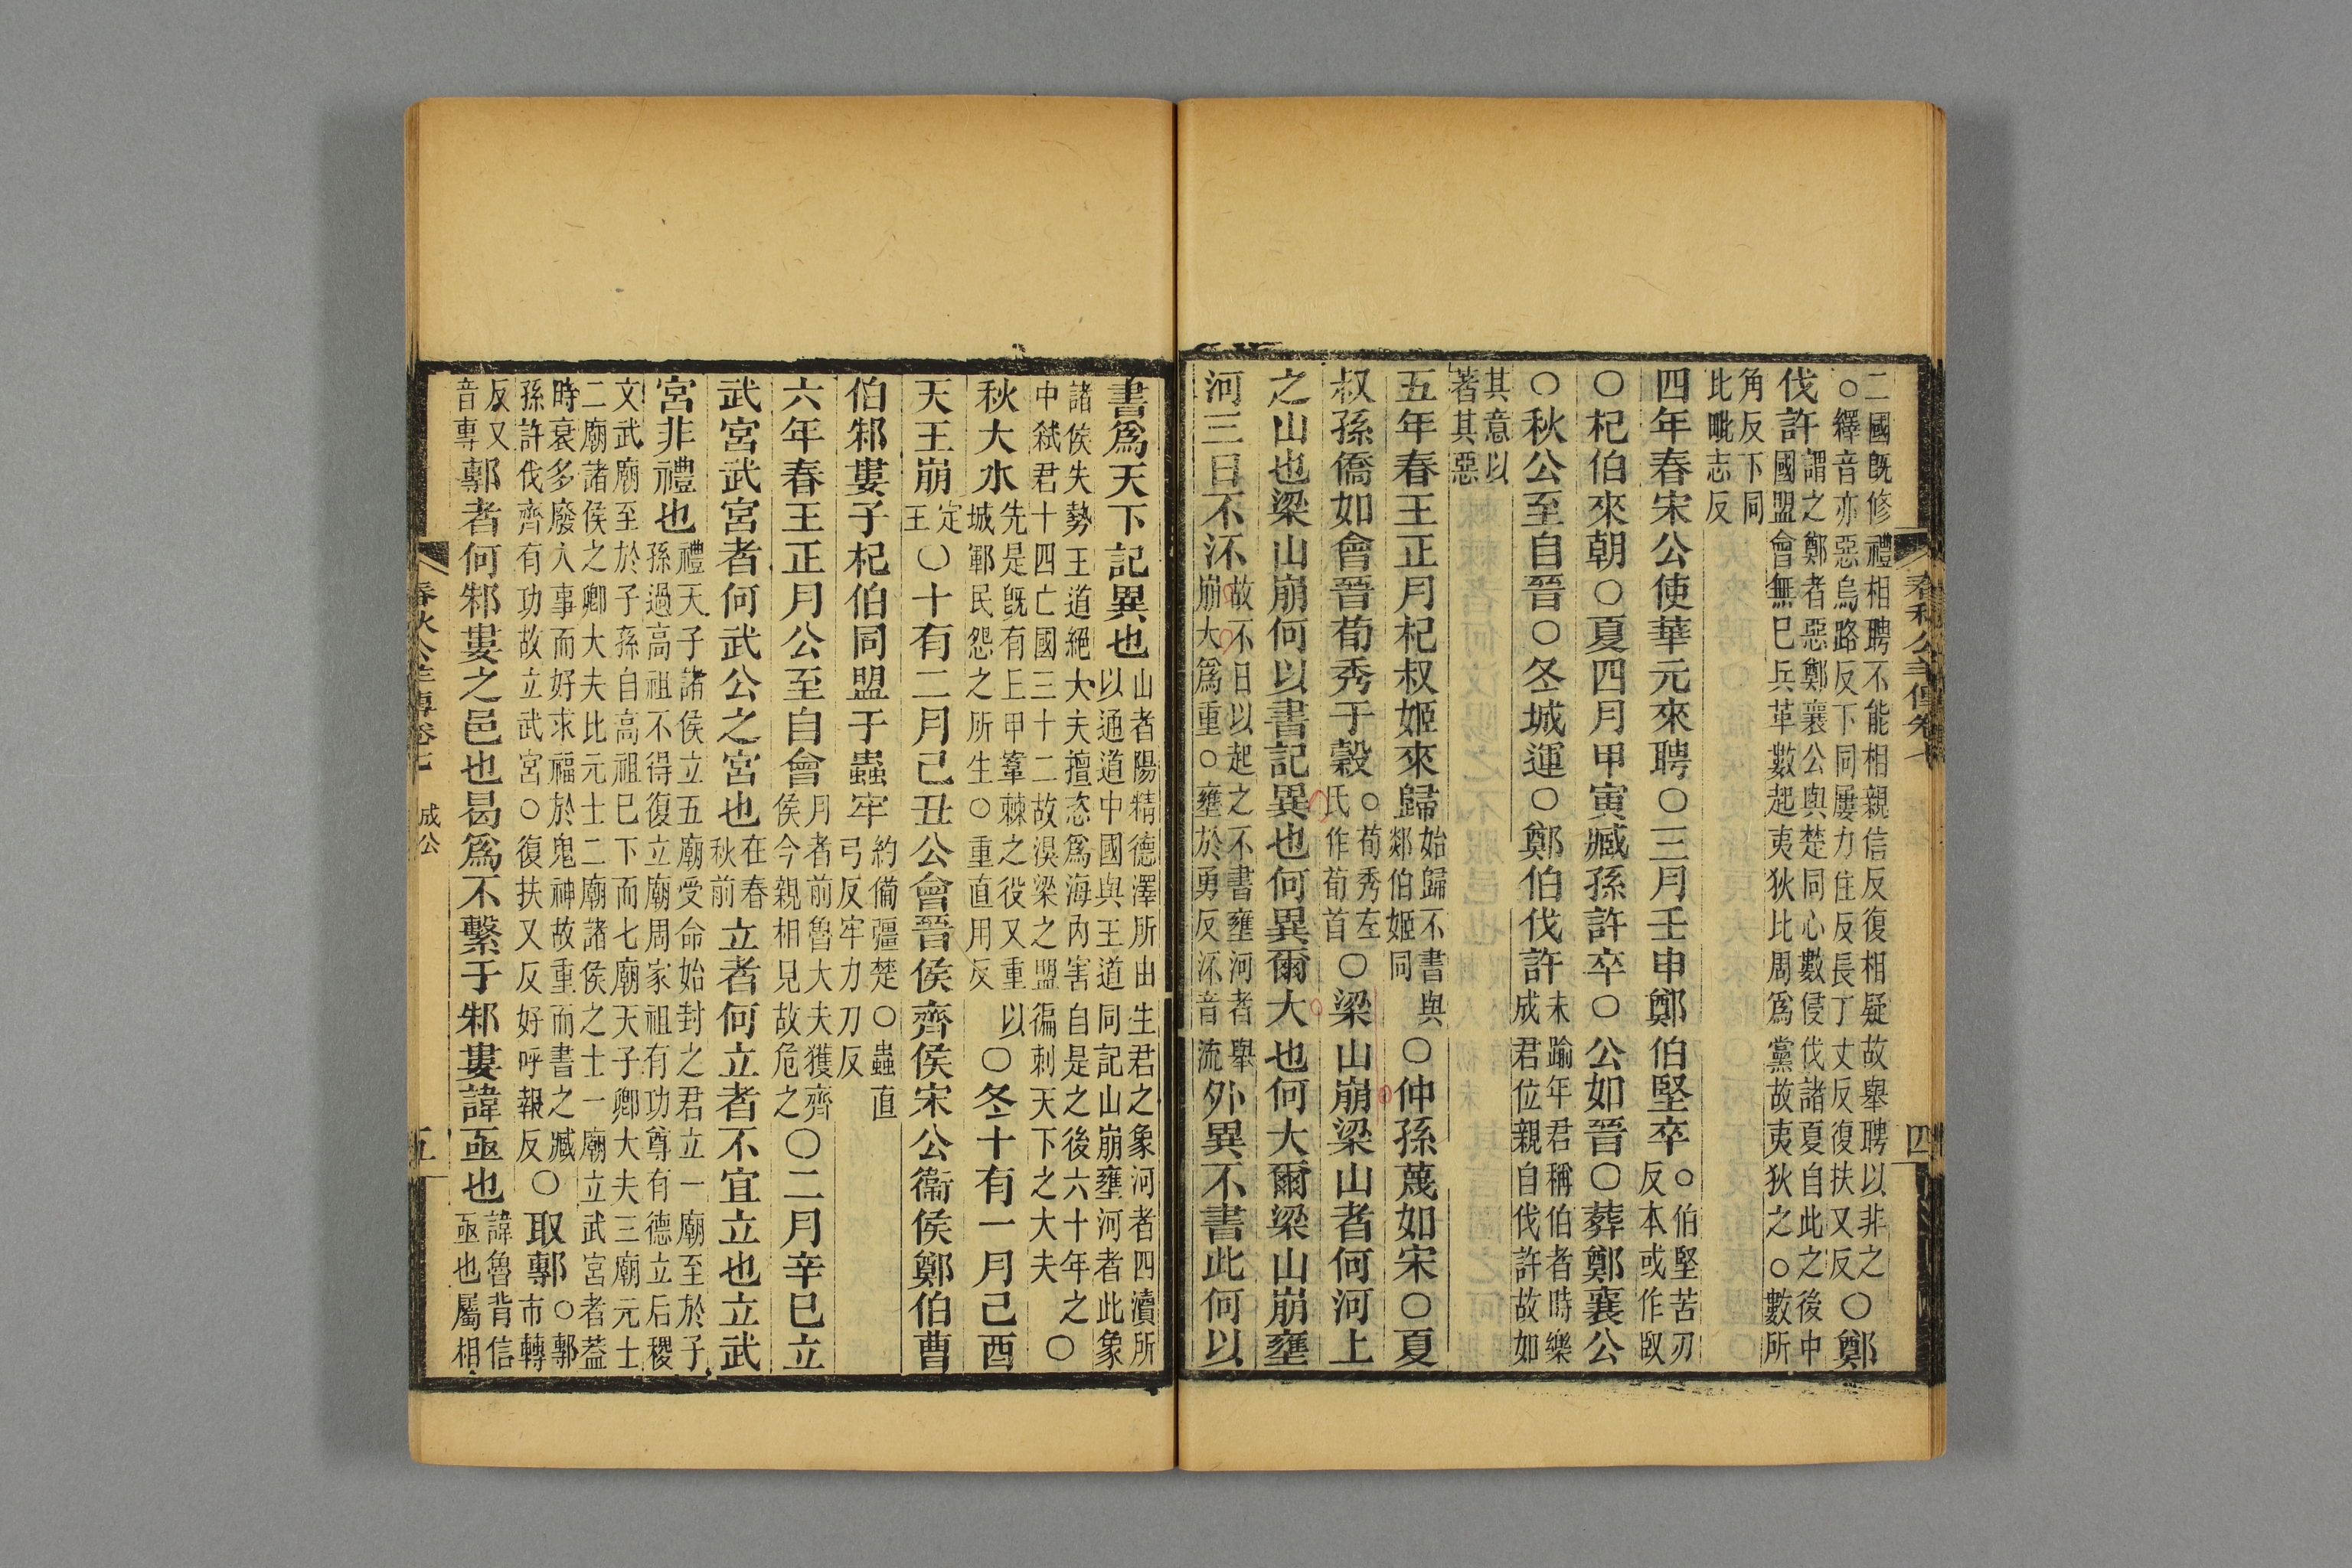 春秋公羊傳卷七 四
二國旣修禮相聘不能相親信反復相疑故舉聘以非之○繹音亦惡烏路反下同屢力住反長丁丈反復扶又反○鄭
伐許謂之鄭者惡鄭襄公與楚同心數侵伐諸夏自此之後中國盟會無已兵革數起夷狄比周爲黨故夷狄之○數所
角反下同比毗志反
四年春宋公使華元來聘○三月壬申鄭伯堅卒○伯堅苦刃反本或作臤
○杞伯來朝○夏四月甲寅臧孫許卒○公如晉○葬鄭襄公
○秋公至自晉○冬城運○鄭伯伐許未踰年君稱伯者時樂成君位親自伐許故如
其意以著其惡
五年春王正月杞叔姬來歸始歸不書與郯伯姬同○仲孫蔑如宋○夏
叔孫僑如會晉荀秀于穀○荀秀左氏作荀首○梁山崩梁山者何河上
之山也梁山崩何以書記異也何異爾大也何大爾梁山崩壅
河三日不㳅故不日以起之不書壅河者舉崩大爲重○壅於勇反㳅音流外異不書此何以
書爲天下記異也山者陽精德澤所由生君之象河者四瀆所以通道中國與王道同記山崩壅河者此象
諸侯失勢王道絕大夫擅恣爲海內害自是之後六十年之中弒君十四亡國三十二故溴梁之盟徧刺天下之大夫○
秋大水先是旣有丘甲鞌棘之役又重以城鄆民怨之所生○重直用反○冬十有一月己酉
天王崩定王○十有二月己丑公會晉侯齊侯宋公衞侯鄭伯曹
伯邾婁子杞伯同盟于蟲牢約備彊楚○蟲直弓反牢力刀反
六年春王正月公至自會月者前魯大夫獲齊侯今親相見故危之○二月辛巳立
武宮武宮者何武公之宮也在春秋前立者何立者不宜立也立武
宮非禮也禮天子諸侯立五廟受命始封之君立一廟至於子孫過高祖不得復立廟周家祖有功尊有德立后稷
文武廟至於子孫自高祖已下而七廟天子卿大夫三廟元士二廟諸侯之卿大夫比元士二廟諸侯之士一廟立武宮者蓋
時衰多廢人事而好求福於鬼神故重而書之臧孫許伐齊有功故立武宮○復扶又反好呼報反○取鄟○鄟市轉
反又音專鄟者何邾婁之邑也曷爲不繫于邾婁諱亟也諱魯背信亟也屬相
春秋公羊傳卷七 成公 五